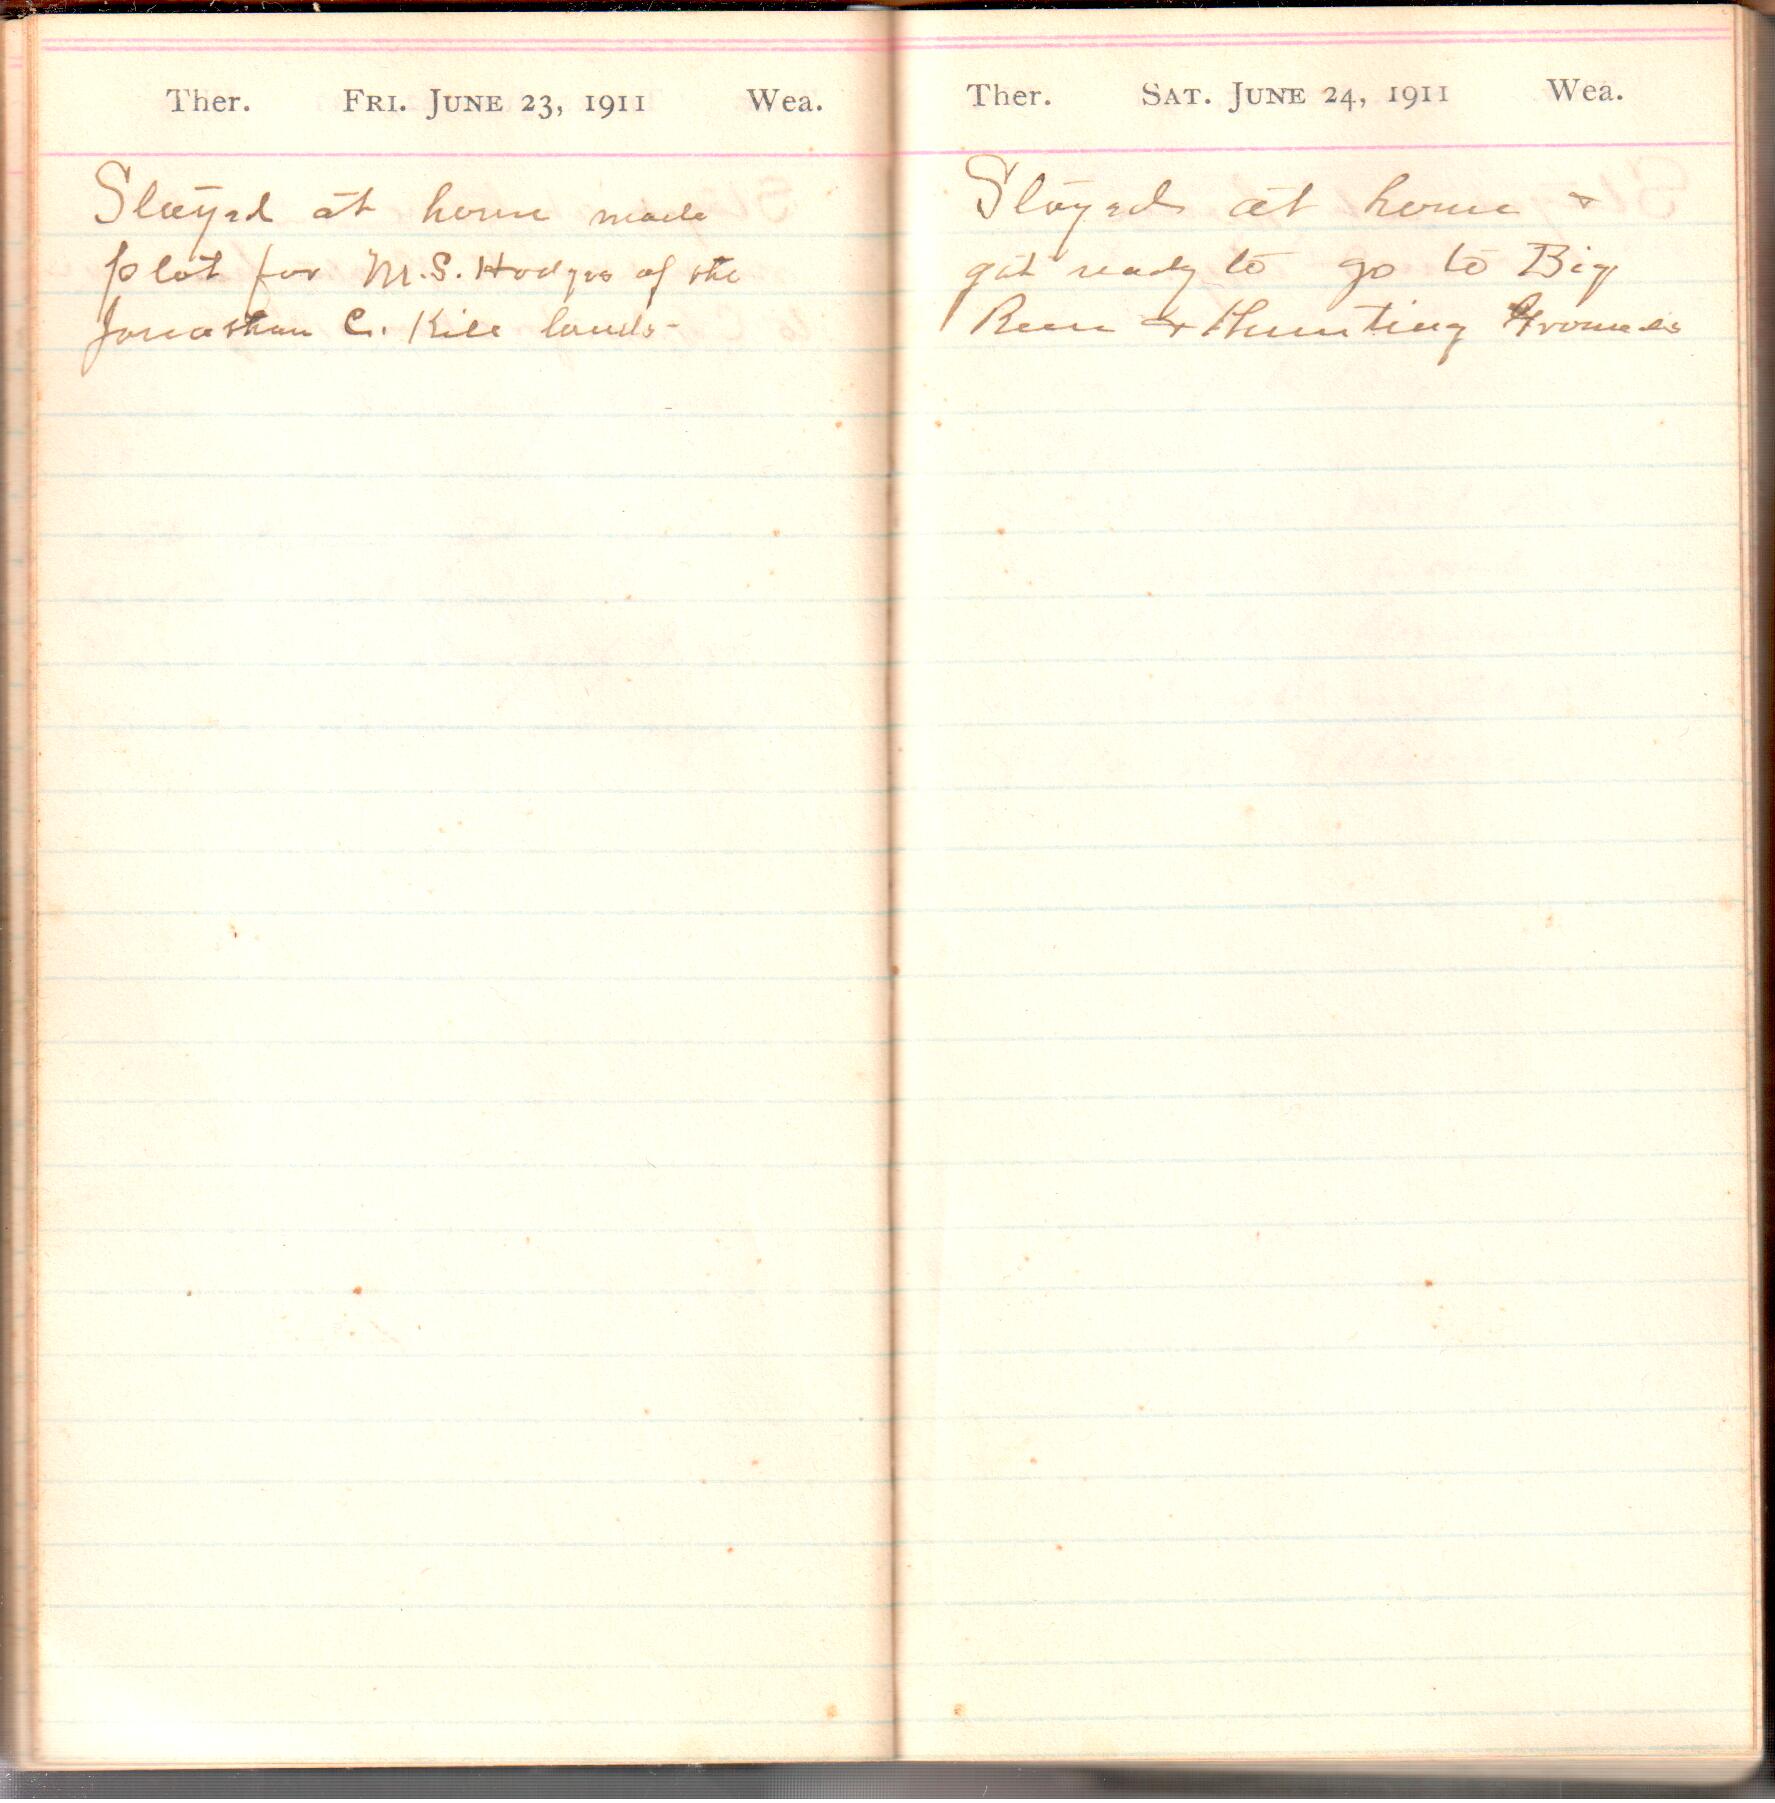 Ther. Fri. June 23, 1911 Wea.
Stayed at home made
plot for M.S. Hodges of the
Jonathan C. Kile lands-
Ther. Sat. June 24, 1911 Wea.
Stayed at home &
got ready to go to Big
Run & Hunting Grounds